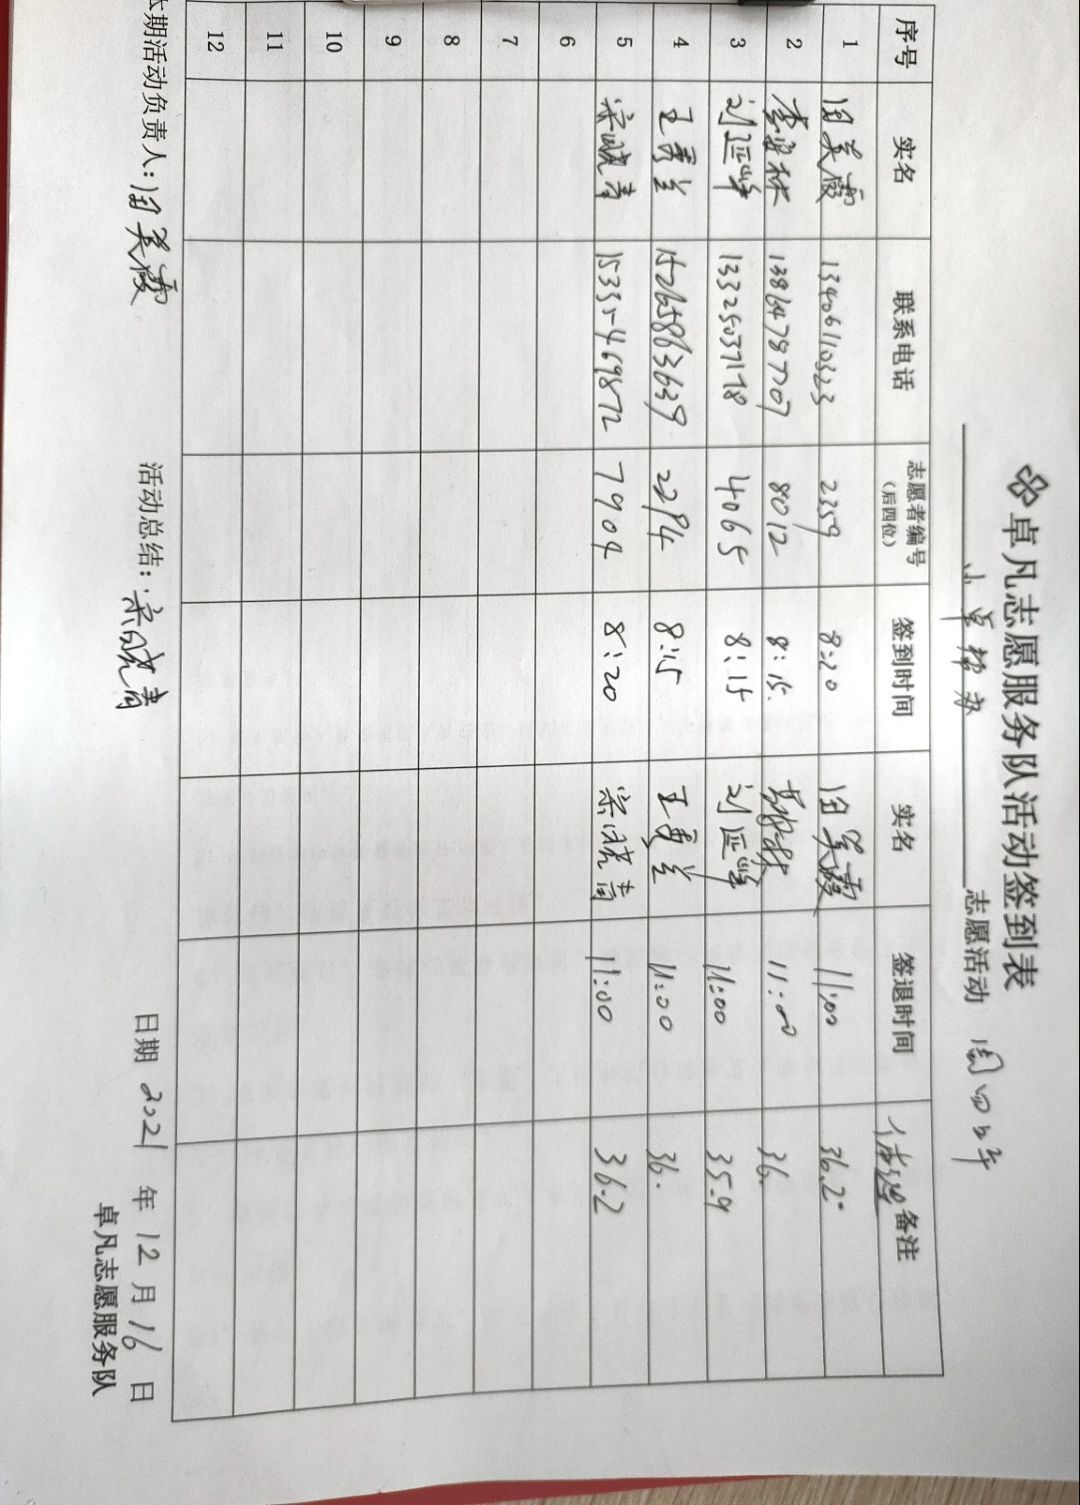 卓凡志愿服务队活动签到表
志愿活动 周四上午
序号 实名 联系电话 志愿者编号(后四位) 签到时间 实名 签退时间 体温 备注
1 田美霞 13406110323 2359 8:20 田美霞 11:00 36.2
2 8012 8:15 11:00 36.
3 刘延峰 13325037178 4065 8:15 刘延峰 11:00 35.9
4 王秀兰 15265863639 2294 8:15 王秀兰 11:00 36.
5 宋晓青 15335469872 7904 8:20 宋晓青 11:00 36.2
6
7
8
9
10
11
12
本期活动负责人:田美霞 活动总结:宋晓青 日期 2021 年 12 月 16 日
卓凡志愿服务队